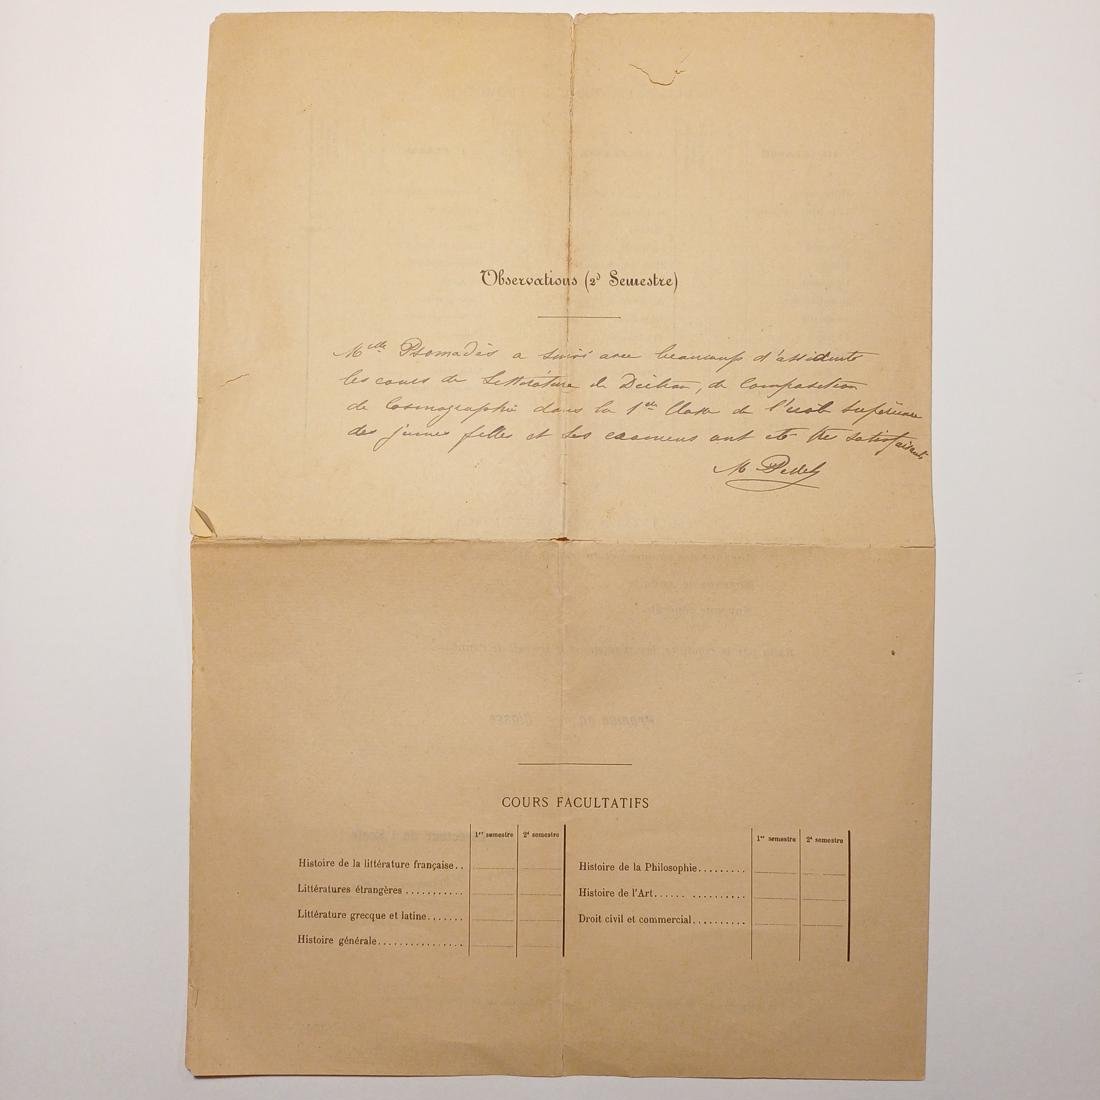 Observations (2ᵈ Semestre)
Mˡˡᵉ Psomadès a suivi avec beaucoup d'assiduité
les cours de Littérature de Diction, de Composition
de Cosmographie dans la 1ʳᵉ Classe de l'école Supérieure
des jeunes filles et ses examens ont été très satisfaisants
M
COURS FACULTATIFS
1ᵉʳ semestre 2ᵈ semestre
Histoire de la littérature française..
Littératures étrangères ...........
Littérature grecque et latine.......
Histoire générale................
1ᵉʳ semestre 2ᵈ semestre
Histoire de la Philosophie.........
Histoire de l'Art...... ............
Droit civil et commercial..........